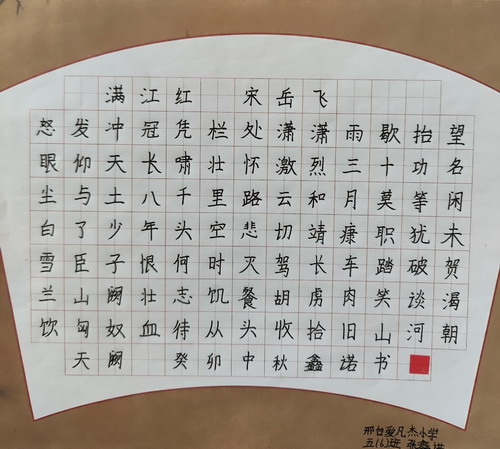 满江红 宋岳飞
怒发冲冠凭栏处潇潇雨歇抬望
眼仰天长啸壮怀激烈三十功名
尘与土八千里路云和月莫等闲
白了少年头空悲切靖康职犹未
雪臣子恨何时灭驾长车踏破贺
兰山阙壮志饥餐胡虏肉笑谈渴
饮匈奴血待从头收拾旧山河朝
天阙 癸卯中秋鑫诺书
邢台爱凡杰小学
五(6)班 张鑫诺